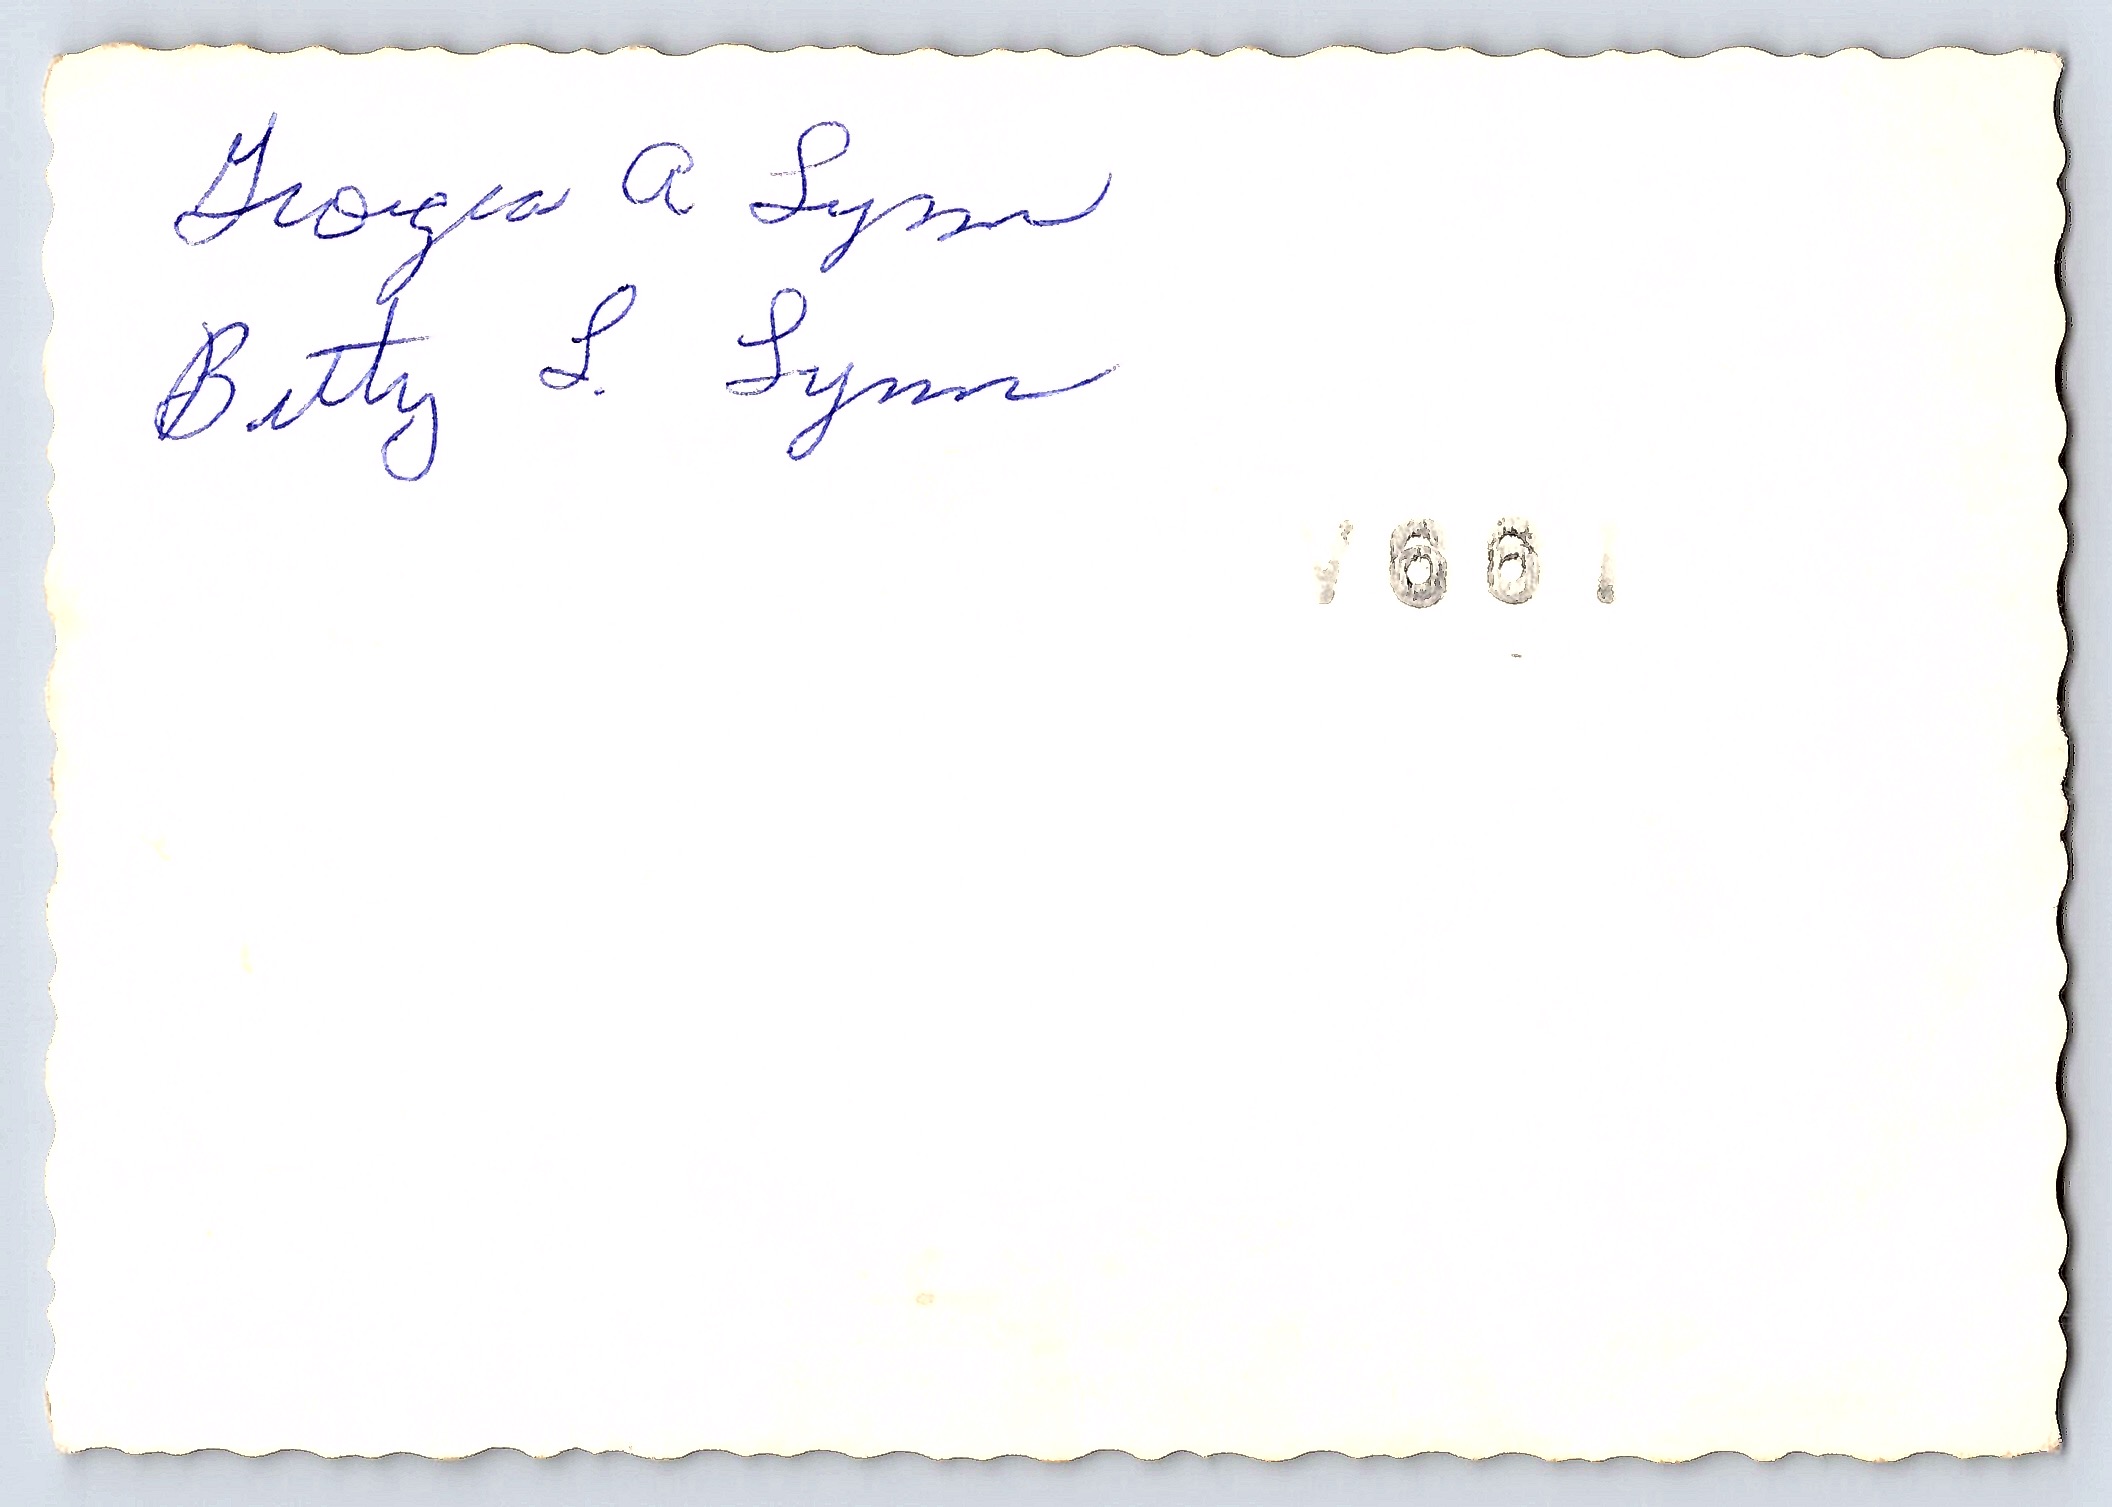 Georgia A Lynn
Betty L. Lynn